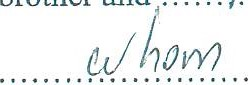 brother and ......
whom
..............................